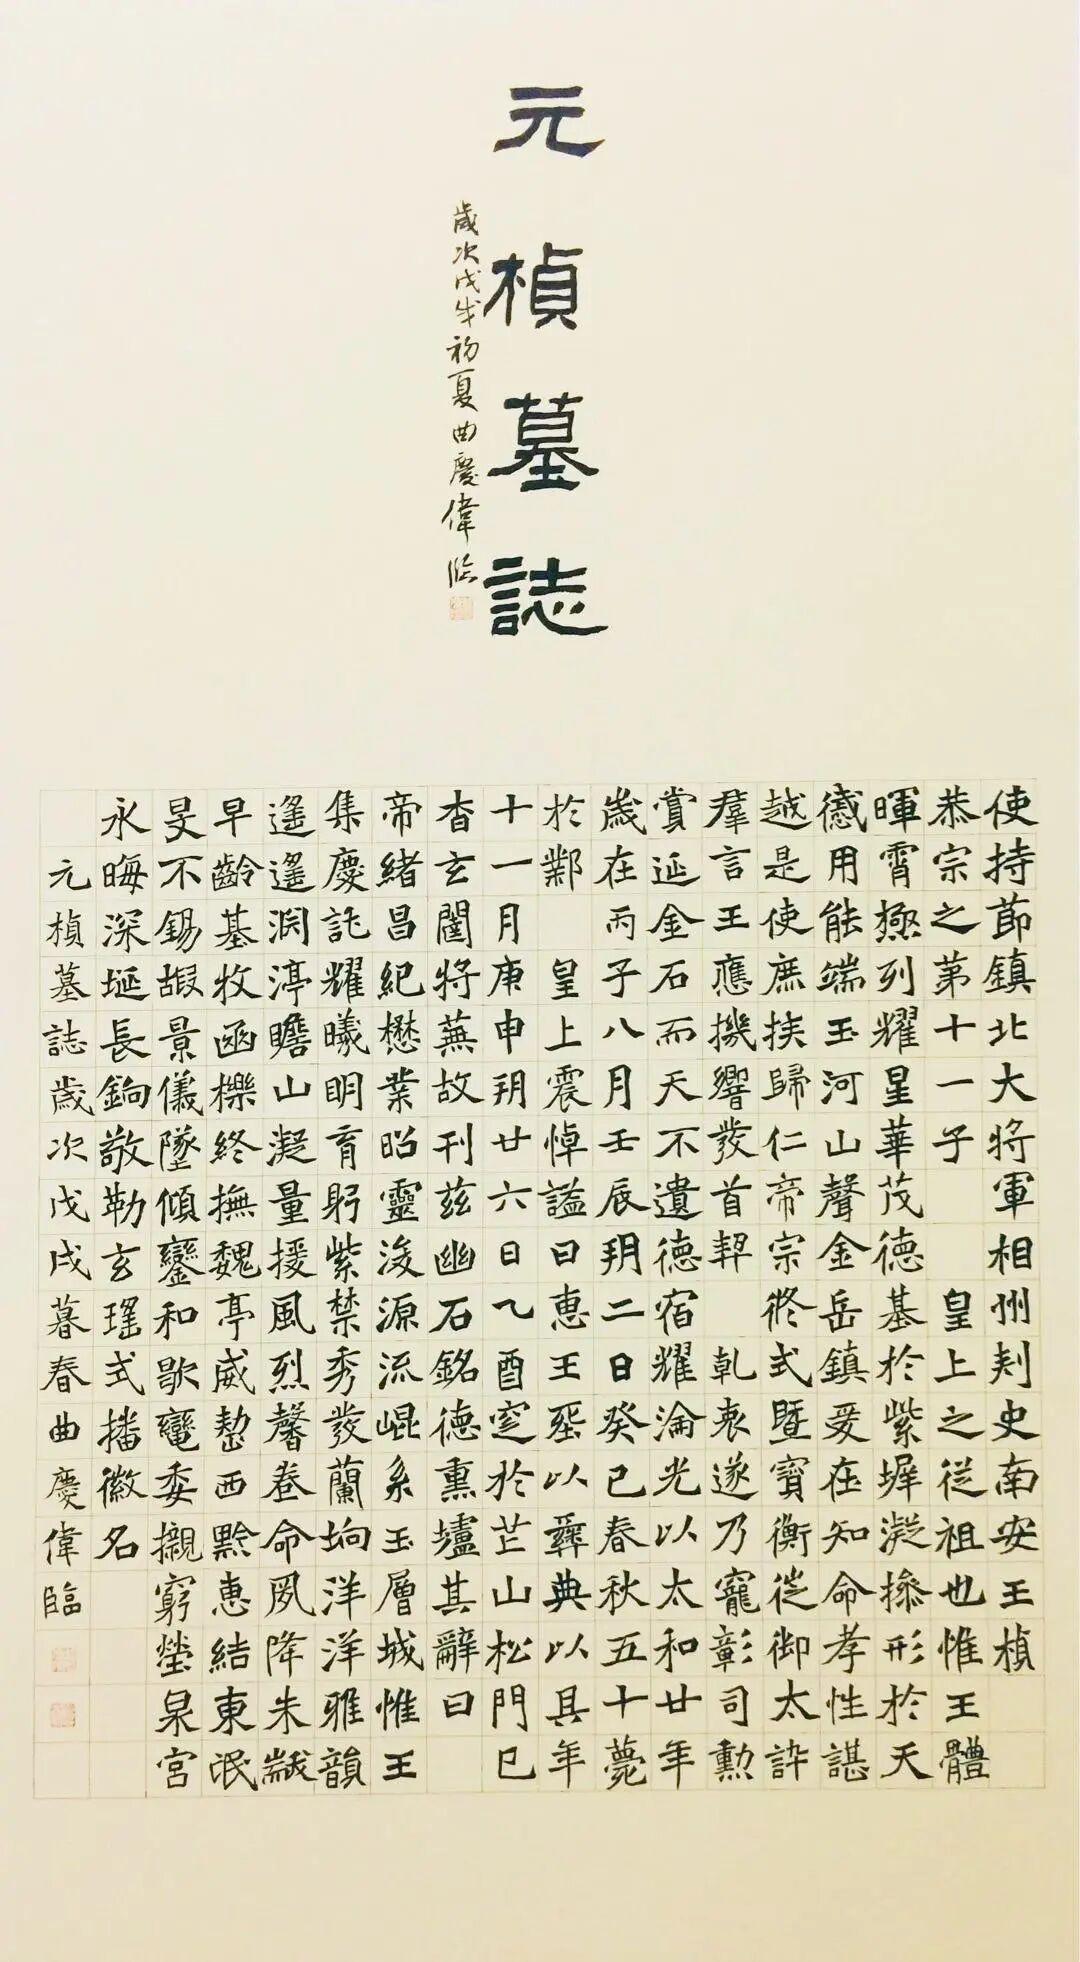 元楨墓誌
歲次戊戌初夏曲慶偉臨
使持節鎮北大將軍相州刾史南安王楨
恭宗之第十一子 皇上之從祖也惟王體
暉霄極列耀星華茂德基於紫墀凝操形於天
感用能端玉河山聲金岳鎮爰在知命孝性諶
越是使庶族歸仁帝宗攸式暨寶衡徙御太訃
羣言王應機響發首契 乾衷遂乃寵彰司勲
賞延金石而天不遺德宿耀淪光以太和廿年
歲在丙子八月壬辰朔二日癸巳春秋五十薨
於鄴 皇上震悼謚曰惠王塟以彝典以其年
十一月庚申朔廿六日乙酉窆於芒山松門已
杳玄閨將蕪故刊茲幽石銘德熏壚其辭曰
帝緒昌紀懋業昭靈浚源流崐系玉層城惟王
集慶託耀曦明育躬紫禁秀發蘭坰洋洋雅韻
遙遙淵渟瞻山凝量援風烈馨卷命夙降朱黻
早齡基牧函櫟終撫魏亭威懃西黔惠結東氓
旻不錫嘏景儀墜傾鑾和歌電委櫬窮塋泉宮
永晦深埏長鉤敬勒玄瑤式播徽名
元楨墓誌歲次戊戌暮春曲慶偉臨